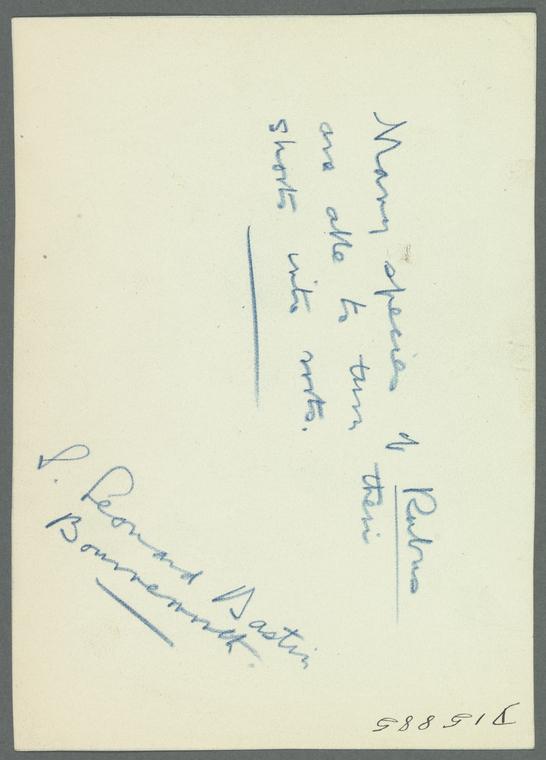 Many species of Rubus
are able to turn their
shoots into roots.
S. Leonard Bastin
Bournemouth.
V15885